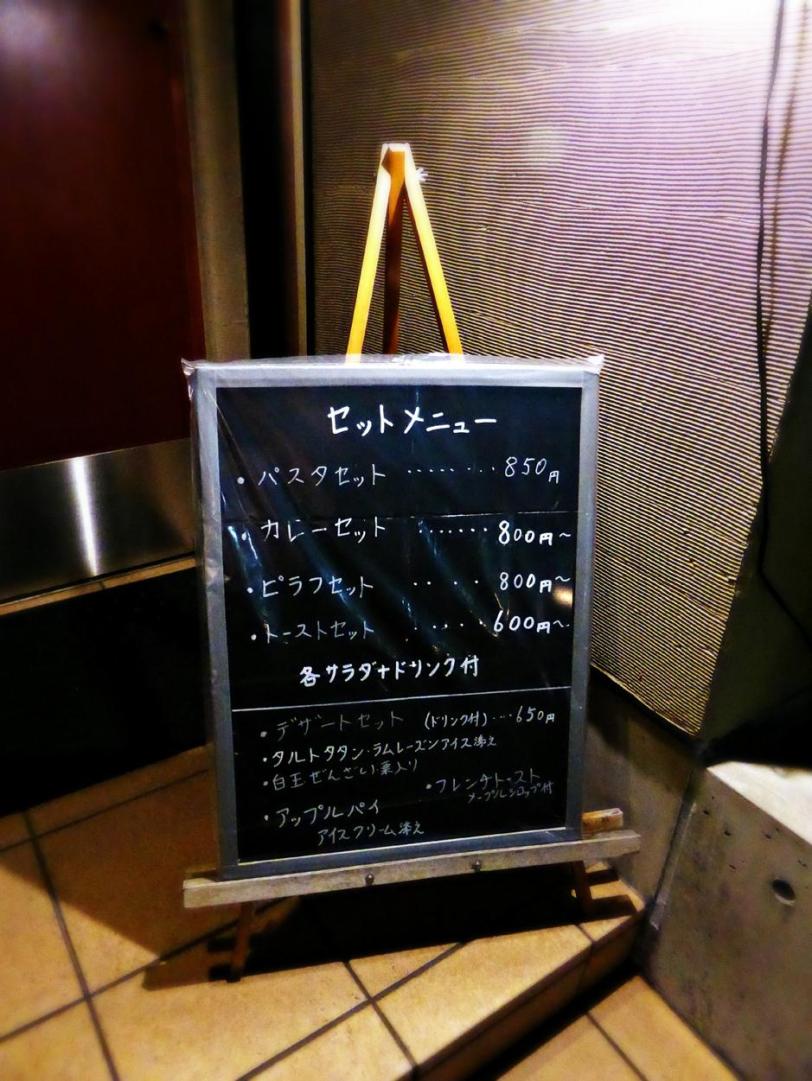 セットメニュー
・パスタセット ········ 850円
・カレーセット ······· 800円～
・ピラフセット ·· · · 800円～
・トーストセット · · · · 600円～
各サラダ+ドリンク付
・デザートセット (ドリンク付)···650円
・タルトタタン・ラムレーズンアイス添え
・白玉ぜんざい栗入り
・フレンチトースト
メープルシロップ付
・アップルパイ
アイスクリーム添え